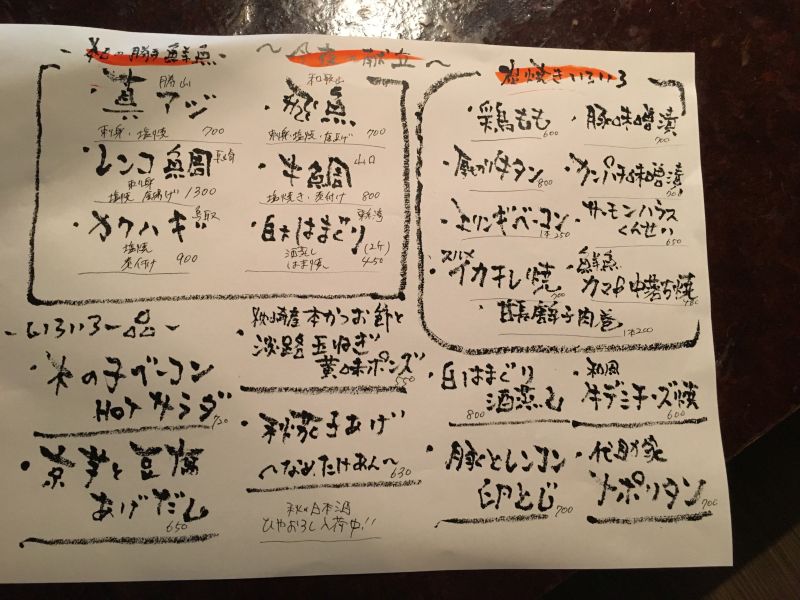 〜今夜の献立〜
勝手鮮魚
勝山
・真アジ
刺身・塩焼 700
・レンコ鯛 長崎
刺身
塩焼 唐揚げ 1300
・カワハギ 鳥取
塩焼
煮付け 900
和歌山
魚
刺身・塩焼・唐揚げ 700
山口
鯛
塩焼き・煮付け 800
・白はまぐり
(2ケ)
酒蒸し
はま焼 450
炭焼きいろいろ
・鶏もも 600
・豚味噌漬 700
・厚切り牛タン 800
・カンパチ味噌漬
・エリンギベーコン 1本250
・サーモンハラス
くんせい 650
・スルメ
イカ 焼 700
・鮮魚
カマ 中落ち焼
・甘長唐辛子肉巻 1本200
-いろいろ一品-
・木の子ベーコン
HOTサラダ 720
・京芋と豆腐
あげだし 650
・本かつお節と
淡路玉ねぎ
黄味ポンズ 550
・秋茄子あげ
〜なめたけあん〜 630
秋の日本酒
ひやおろし入荷中!!
・白はまぐり
酒蒸し 800
・和風
牛デミチーズ焼 600
・豚とレンコン
卵とじ 700
ナポリタン 700